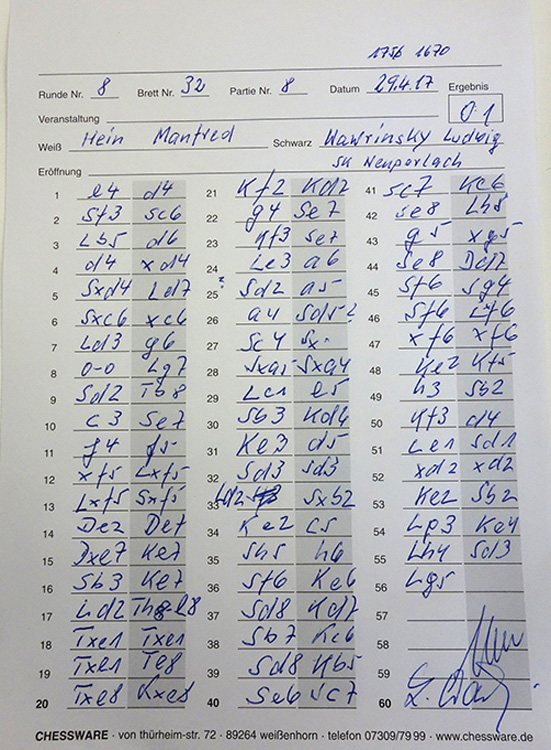 1756 1670
Runde Nr. 8 Brett Nr. 32 Partie Nr. 8 Datum 29.4.17 Ergebnis
Veranstaltung 0 1
Weiß Hein Manfred Schwarz Wawrinsky Ludwig
Eröffnung SK Neuperlach
1 e4 d4 21 Kf2 Kd7 41 Sc7 Kc6
2 Sf3 Sc6 22 g4 Se7 42 Se8 Lh8
3 Lb5 d6 23 Kf3 Se7 43 g5 xg5
4 d4 xd4 24 Le3 a6 44 Se8
5 Sxd4 Ld7 25 Sd2 a5 45 Sf6 Sg4
6 Sxc6 xc6 26 a4 Sd5 46 Sf6 Lf6
7 Ld3 g6 27 Sc4 Sx 47 xf6 xf6
8 0-0 Lg7 28 Sxa5 Sxa4 48 Ke2 Kf5
9 Sd2 Tb8 29 Lc1 e5 49 h3 Sb2
10 c3 Se7 30 Sb3 Kd6 50 Kf3 d4
11 f4 f5 31 Ke3 d5 51 Le1 Sd1
12 xf5 Lxf5 32 Sd3 Sd3 52 xd2 xd2
13 Lxf5 Sxf5 33 Ld2 Sxb2 53 Ke2 Sb2
14 De2 De7 34 Ke2 c5 54 Lp3 Ke4
15 Dxe7 Ke7 35 Sh5 h6 55 Lh4 Sd3
16 Sb3 Ke7 36 Sf6 Ke6 56 Lg5
17 Ld2 37 Sd8 Kd7 57
18 Txe1 Txe1 38 Sb7 Kc6 58
19 Txe1 Te8 39 Sd8 Kb5 59
20 Txe8 Kxe8 40 Se6 Sc7 60
CHESSWARE · von thürheim-str. 72 · 89264 weißenhorn · telefon 07309/79 99 · www.chessware.de